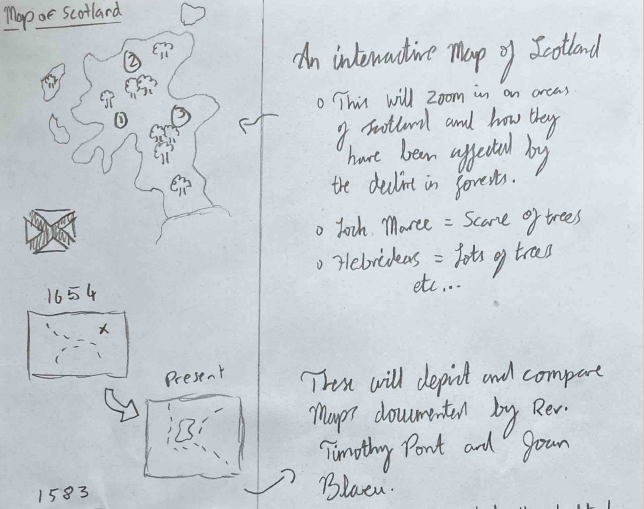 Map of Scotland
2
1
3
An interactive Map of Scotland
o This will zoom in on areas
of Scotland and how they
have been affected by
the decline in forests.
o Loch Maree = Scarce of trees
o Hebrideas = Lots of trees
etc...
1654
x
Present
These will depict and compare
Maps documented by Rev.
Timothy Pont and Joan
Blaeu.
1583